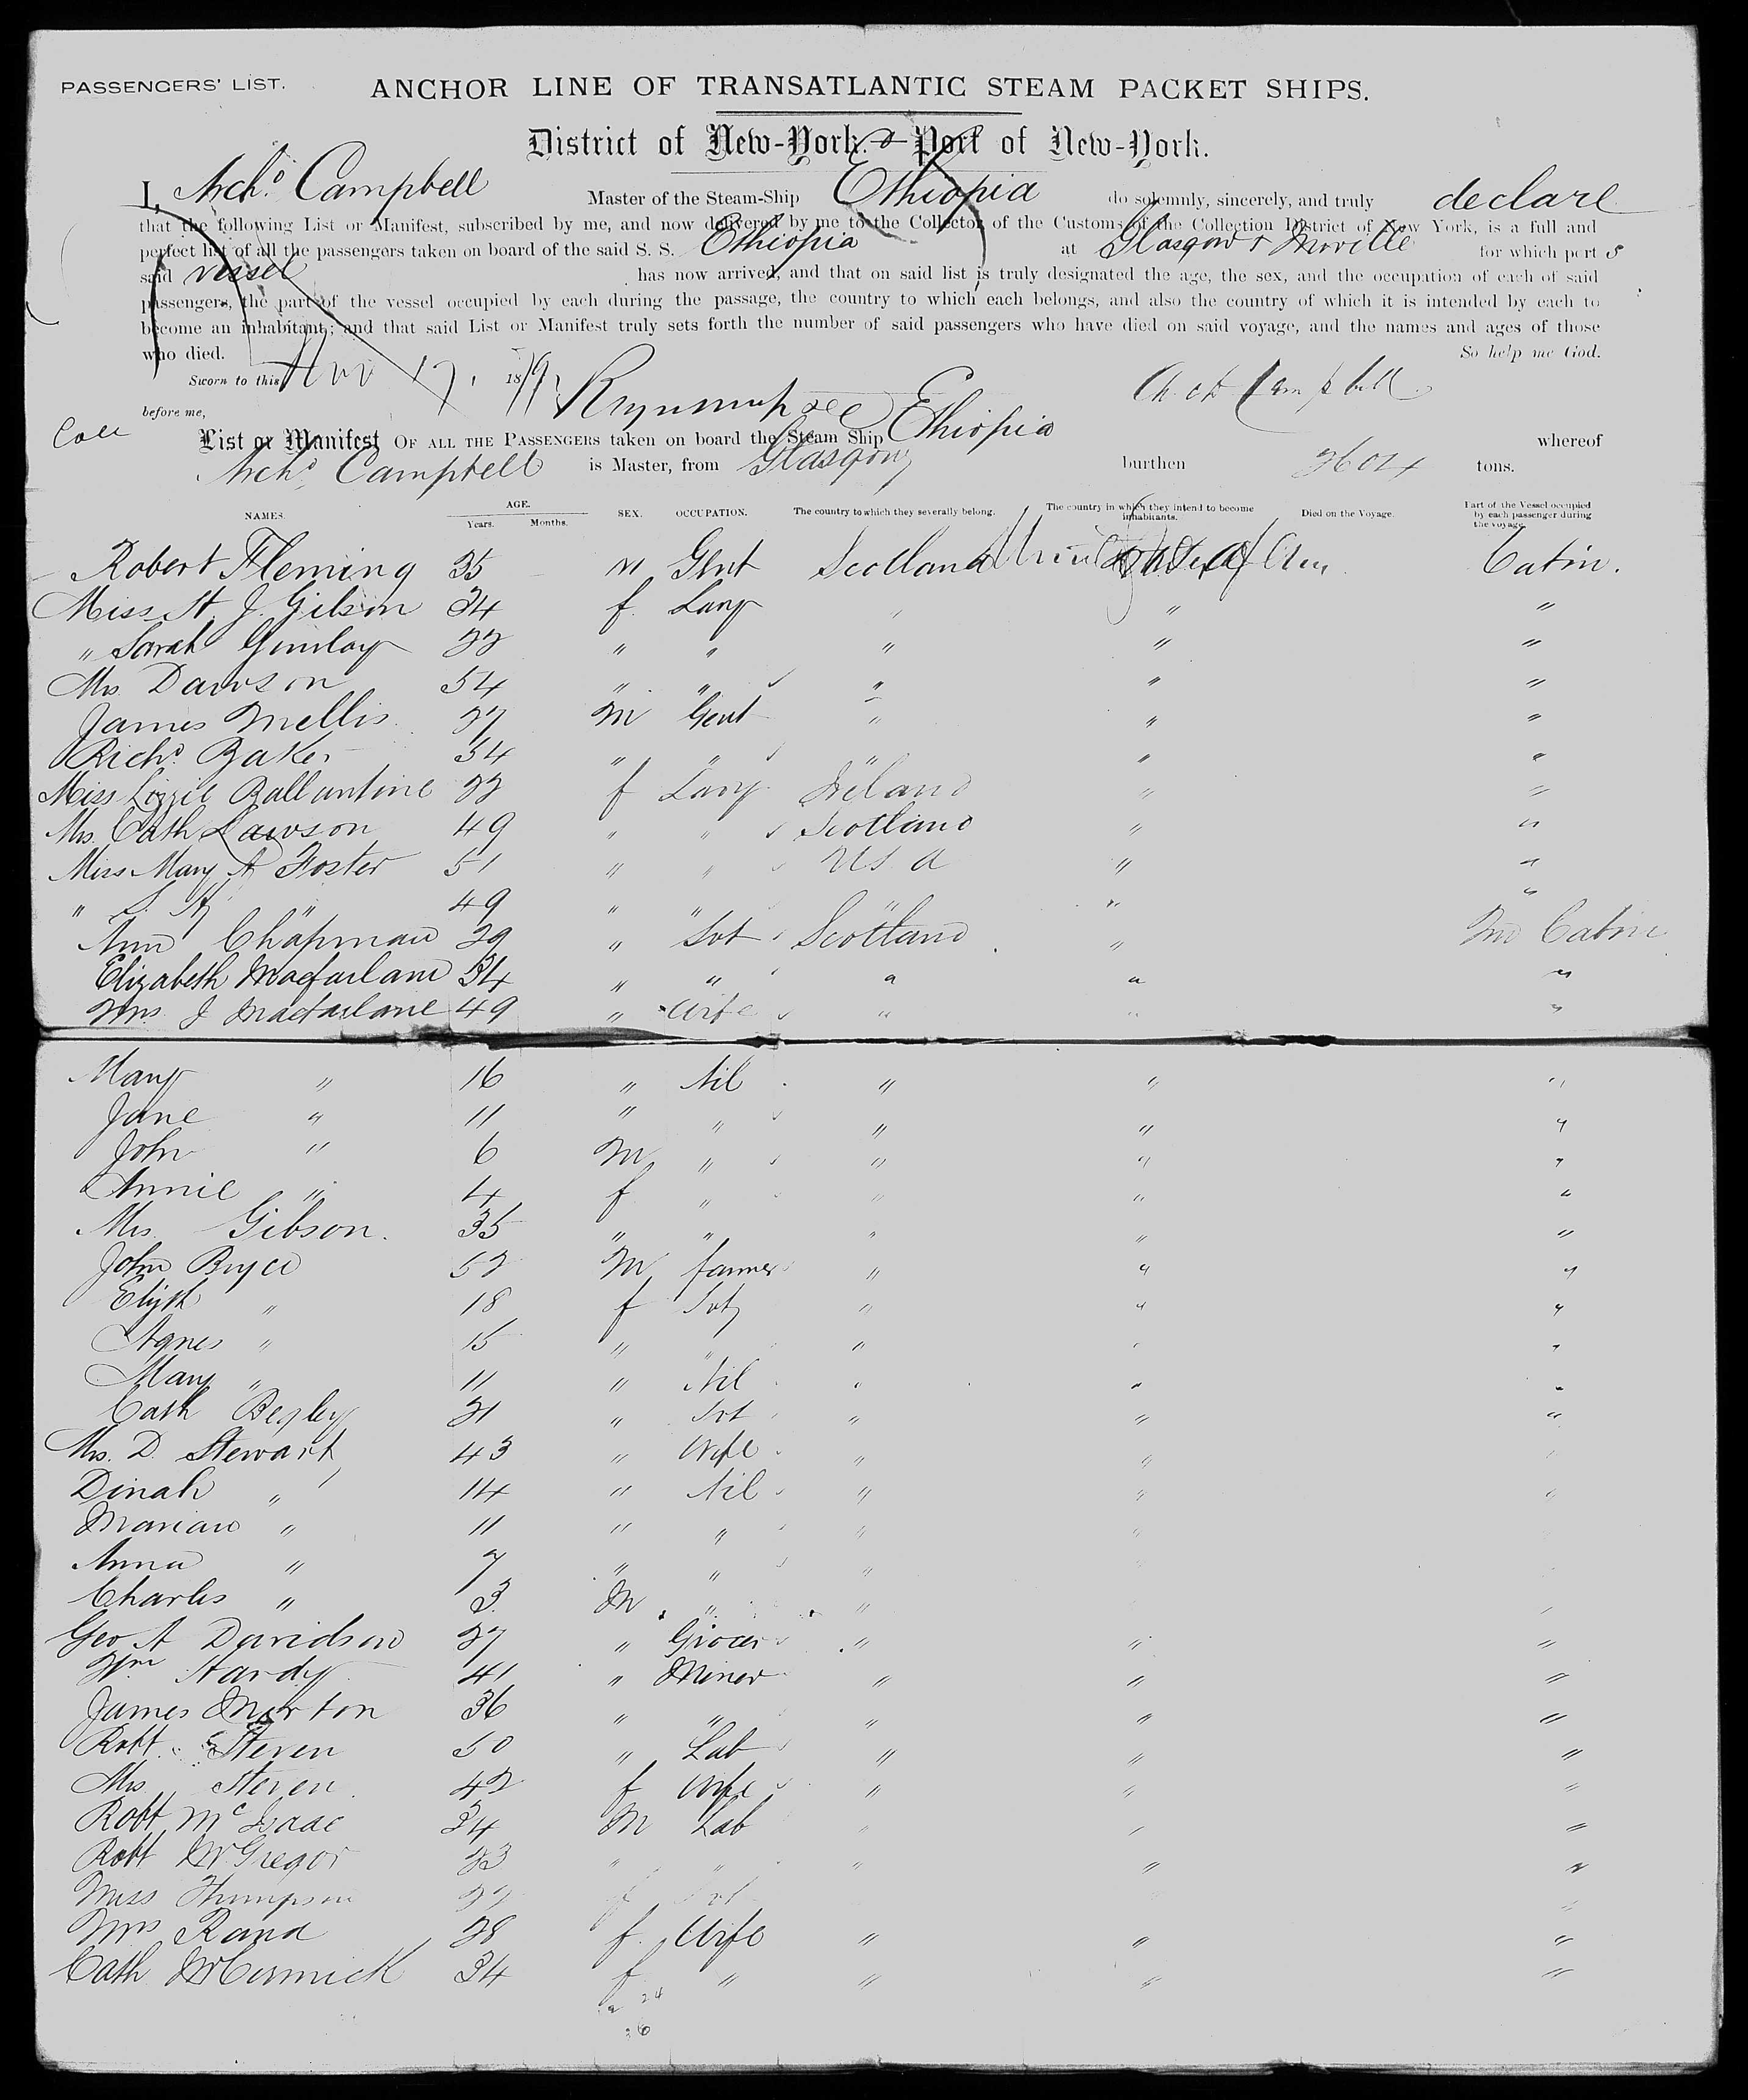 PASSENGERS' LIST. ANCHOR LINE OF TRANSATLANTIC STEAM PACKET SHIPS.
District of New-York.—Port of New-York.
I, Archd. Campbell Master of the Steam-Ship Ethiopia do solemnly, sincerely, and truly declare
that the following List or Manifest, subscribed by me, and now delivered by me to the Collector of the Customs of the Collection District of New York, is a full and
perfect list of all the passengers taken on board of the said S. S. Ethiopia at Glasgow & Moville for which port
said vessel has now arrived, and that on said list is truly designated the age, the sex, and the occupation of each of said
passengers, the part of the vessel occupied by each during the passage, the country to which each belongs, and also the country of which it is intended by each to
become an inhabitant; and that said List or Manifest truly sets forth the number of said passengers who have died on said voyage, and the names and ages of those
who died. So help me God.
Sworn to this Nov 17, 1879 Archd Campbell
before me,
List or Manifest OF ALL THE PASSENGERS taken on board the Steam Ship Ethiopia whereof
Archd Campbell is Master, from Glasgow burthen tons.
NAMES. AGE. Years. Months. SEX. OCCUPATION. The country to which they severally belong. The country in which they intend to become inhabitants. Died on the Voyage. Part of the Vessel occupied by each passenger during the voyage.
Robert Fleming 35 m Gent Scotland Cabin.
Miss H. J. Gibson 34 f. Lady " "
" Sarah 22 " " " " "
Mrs Dawson 54 " " " " "
James Mellis 27 M Gent " " "
Richd. Baker 34 " " " " "
Miss Lizzie Ballantine 22 f Lady Ireland " "
Mrs. Cath Lawson 49 " " Scotland " "
Miss Mary A Foster 51 " " U.S.A " "
" " 49 " " " " "
Ann Chapman 29 " Svt Scotland " Cabin
Elizabeth Macfarlane 34 " " " " "
Mrs J Macfarlane 49 " Wife " " "
Mary " 16 " Nil " " "
Jane " 11 " " " " "
John " 6 M " " " "
Annie " 4 f " " " "
Mrs. Gibson. 35 " " " " "
John Bryce 52 M farmer " " "
Elizth " 18 f Svt " " "
Agnes " 15 " " " " "
Mary " 11 " Nil " " "
Cath Begley 21 " Svt " " "
Mrs. D. Stewart 43 " Wife " " "
Dinah " 14 " Nil " " "
Marian " 11 " " " "
Anna " 7 " " "
Charles " 3 M " " "
Geo A Davidson 27 " Grocer " " "
Wm Hardy 41 " Miner " " "
James Morton 36 " " " " "
Robt. Steven 50 " Lab " " "
Mrs Steven 42 f Wife " " "
Robt McIsaac 34 M Lab " " "
Robt McGregor 23 " " " " "
Miss Thompson 22 f Svt "
Mrs Rand 28 f. Wife " " "
Cath McCormick 34 f " " " "
24